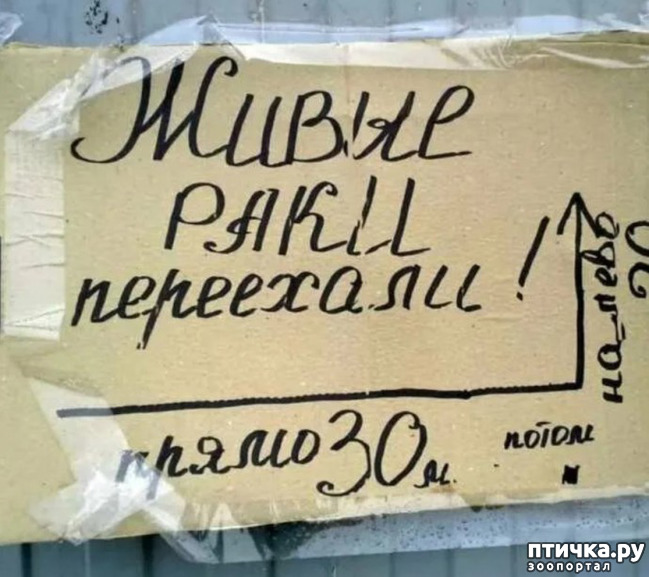 Живые
РАКИ
переехали!
прямо 30 м.
потом
на лево
20
птичка.ру
зоопортал